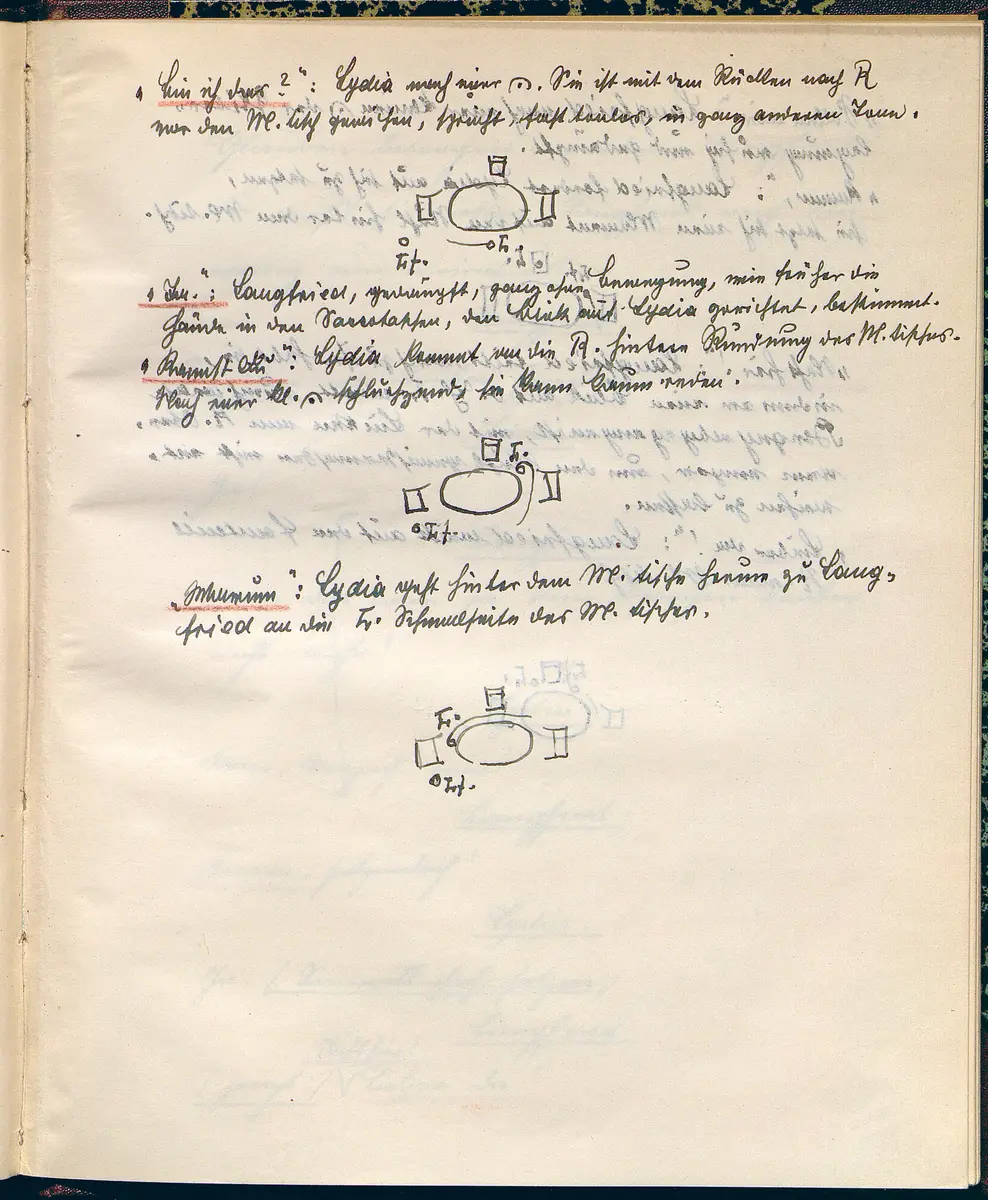 „Bin ich das?“: Lydia nach einer ⌒. Sie ist mit dem Rücken nach R
vor den M. tisch gewichen, spricht, fast tonlos, in ganz anderem Tone.
L.
Lf.
„Ja.“: Langfried, gedämpft, ganz ohne Bewegung, wie früher die
Hände in den Saccotaschen, den Blick auf Lydia gerichtet, bestimmt.
„Kannst du“: Lydia kommt an die R. hintere Rundung des M. tisches.
Nach einer kl. ⌒ schluchzend, sie kann kaum reden.
L.
Lf.
„Warum“: Lydia geht hinter dem M. tische herum zu Lang-
fried an die L. Schmalseite des M. tisches.
L.
Lf.